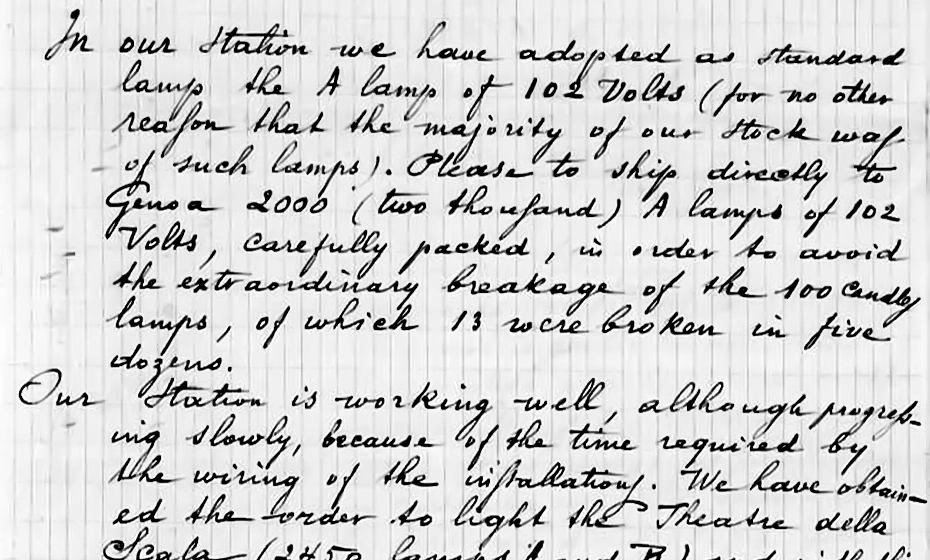 In our Station we have adopted as standard
lamp the A lamp of 102 Volts (for no other
reason that the majority of our Stock was
of such lamps). Please to ship directly to
Genoa 2000 (two thousand) A lamps of 102
Volts, carefully packed, in order to avoid
the extraordinary breakage of the 100 Candles
lamps, of which 13 were broken in five
dozens.
Our Station is working well, although progress-
ing slowly, because of the time required by
the wiring of the installations. We have obtain-
ed the order to light the Theatre della
Scala (2450 lamps A and B) and